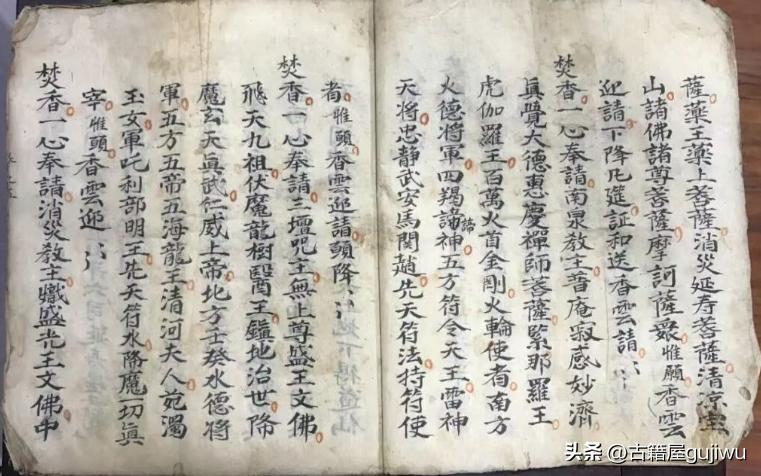 薩藥王藥上菩薩消災延寿菩薩清凉
山諸佛諸尊菩薩摩訶薩眾惟願香雲
迎請下降凡筵証和送香雲請
焚香一心奉請南泉教主普庵寂感妙濟
真覺大德惠慶禪師菩薩緊那羅王
虎伽羅王百萬火首金剛火輪使者南方
火德將軍四揭諦諦神五方符令天王雷神
天將忠静武安馬関趙先天符法持符使
者惟願香雲迎請願降
焚香一心奉請三壇咒主無上尊盛王文佛
飛天九祖伏魔龍樹醫王鎮地治世降
魔玄天真武仁威上帝地方壬癸水德將
軍五方五帝五海龍王清河天人苑濁
玉女軍吒利部明王先天符水降魔一切真
宰惟願香雲迎
焚香一心奉請消災教主熾盛光王文佛中
头条 @古籍屋gujiwu